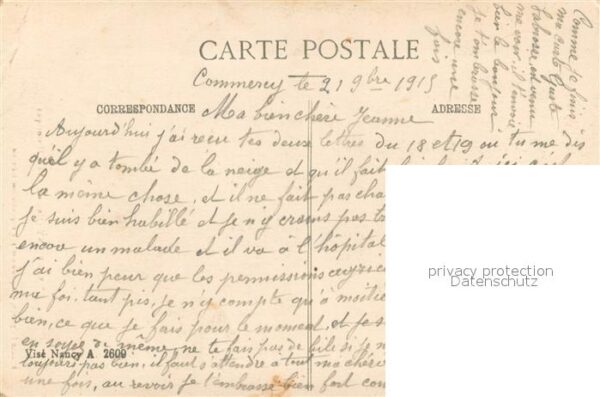 CARTE POSTALE
Commercy le 21 9bre 1915
CORRESPONDANCE
ADRESSE
Ma bien chère Jeanne
Aujourd'hui j'ai recu tes deux lettres du 18 et 19 ou tu me dis
qu'il y a tombé de la neige et qu'il fait
la même chose, et il ne fait pas
je suis bien habillé et je n'y crains pas
encore un malade et il va à l'hôpital
j'ai bien peur que les permissions
ma foi tant pis, je n'y compte qu'à moitié
bien, ce que je fais pour le moment, et je
en soyez de même, ne te fais pas de bile si je
toujours pas bien, il faut s'attendre à tout ma
une fois, au revoir je t'embrasse bien fort
Visé Nancy A 2609
Comme je finis
ma carte
me voir, il t'envoie
bien le bonjour
je t'embrasse
encore une
fois
privacy protection
Datenschutz